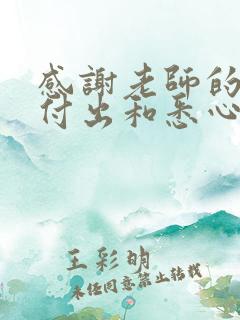 感謝老師的
付出和悉心
王彩明
未經同意禁止轉載